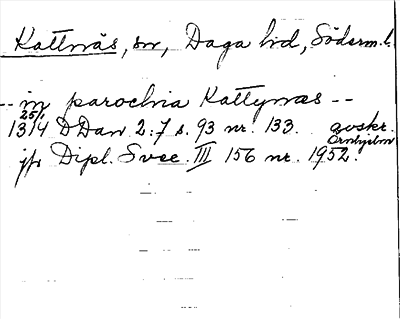 Kattnäs, sn, Daga hd, Söderm. l.
-- in parochia Kattynæs --
25/1
1314 DDan 2:7 s. 93 nr. 133. avskr. Örnhjelm
jfr Dipl. Svec. III 156 nr. 1952.